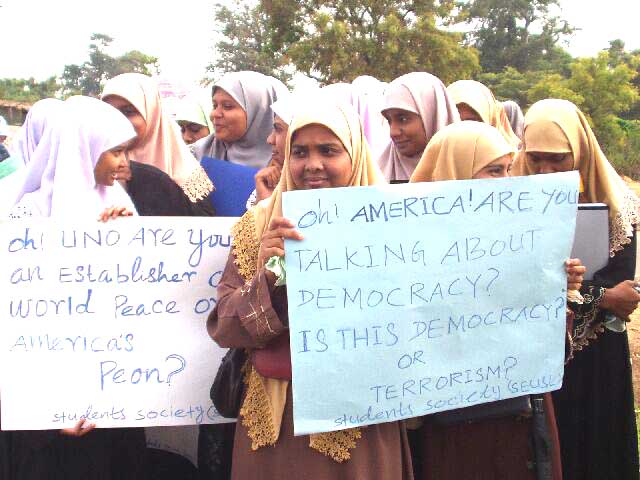 Oh! UNO ARE you
an Establisher
World Peace or
America's
Peon?
students society
Oh! AMERICA! ARE YOU
TALKING ABOUT
DEMOCRACY?
IS THIS DEMOCRACY?
OR
TERRORISM?
students society (SEUSL)